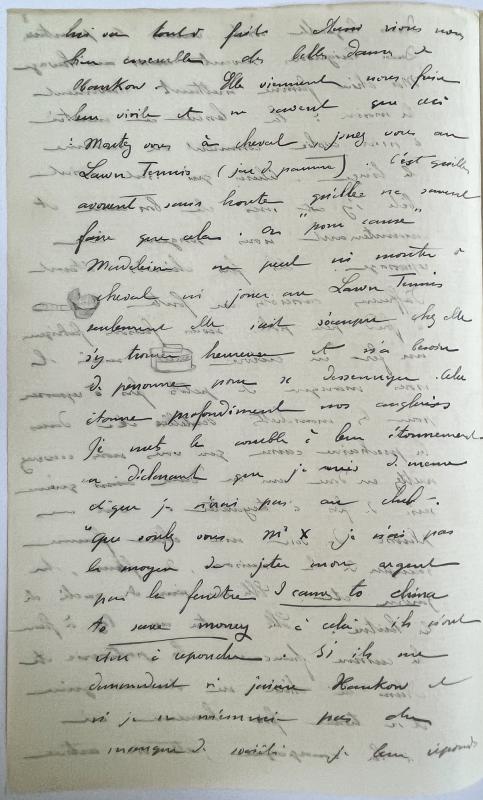 lui va tout à fait. Aussi vivons nous
bien ensemble des belles dames d
Hankow. Elle viennent nous faire
leur visite et ne savent que ceci
: Montez vous à cheval jouez vous au
Lawn Tennis (jeu d paume) C'est qu'elles
avouent sans honte qu'elles ne savent
faire que cela. Or "pour cause"
Madeleine ne peut ni monter à
cheval ni jouer au Lawn Tennis
seulement elle sait s'occuper chez elle
s'y trouver heureuse et n'a besoin
d personne pour se desennuyer. Cela
étonne profondément nos anglaises
Je met le comble à leur étonnement
en déclarant que je suis d même
et que je n'irai pas au club.
"Que voulez vous Mr X je n'ai pas
le moyen de jeter mon argent
par la fenêtre I came to china
to save money à cela ils n'ont
rien à repondre. Si ils me
demandent si j'aime Hankow et
si je ne m'ennuie pas du
manque d société je leur reponds